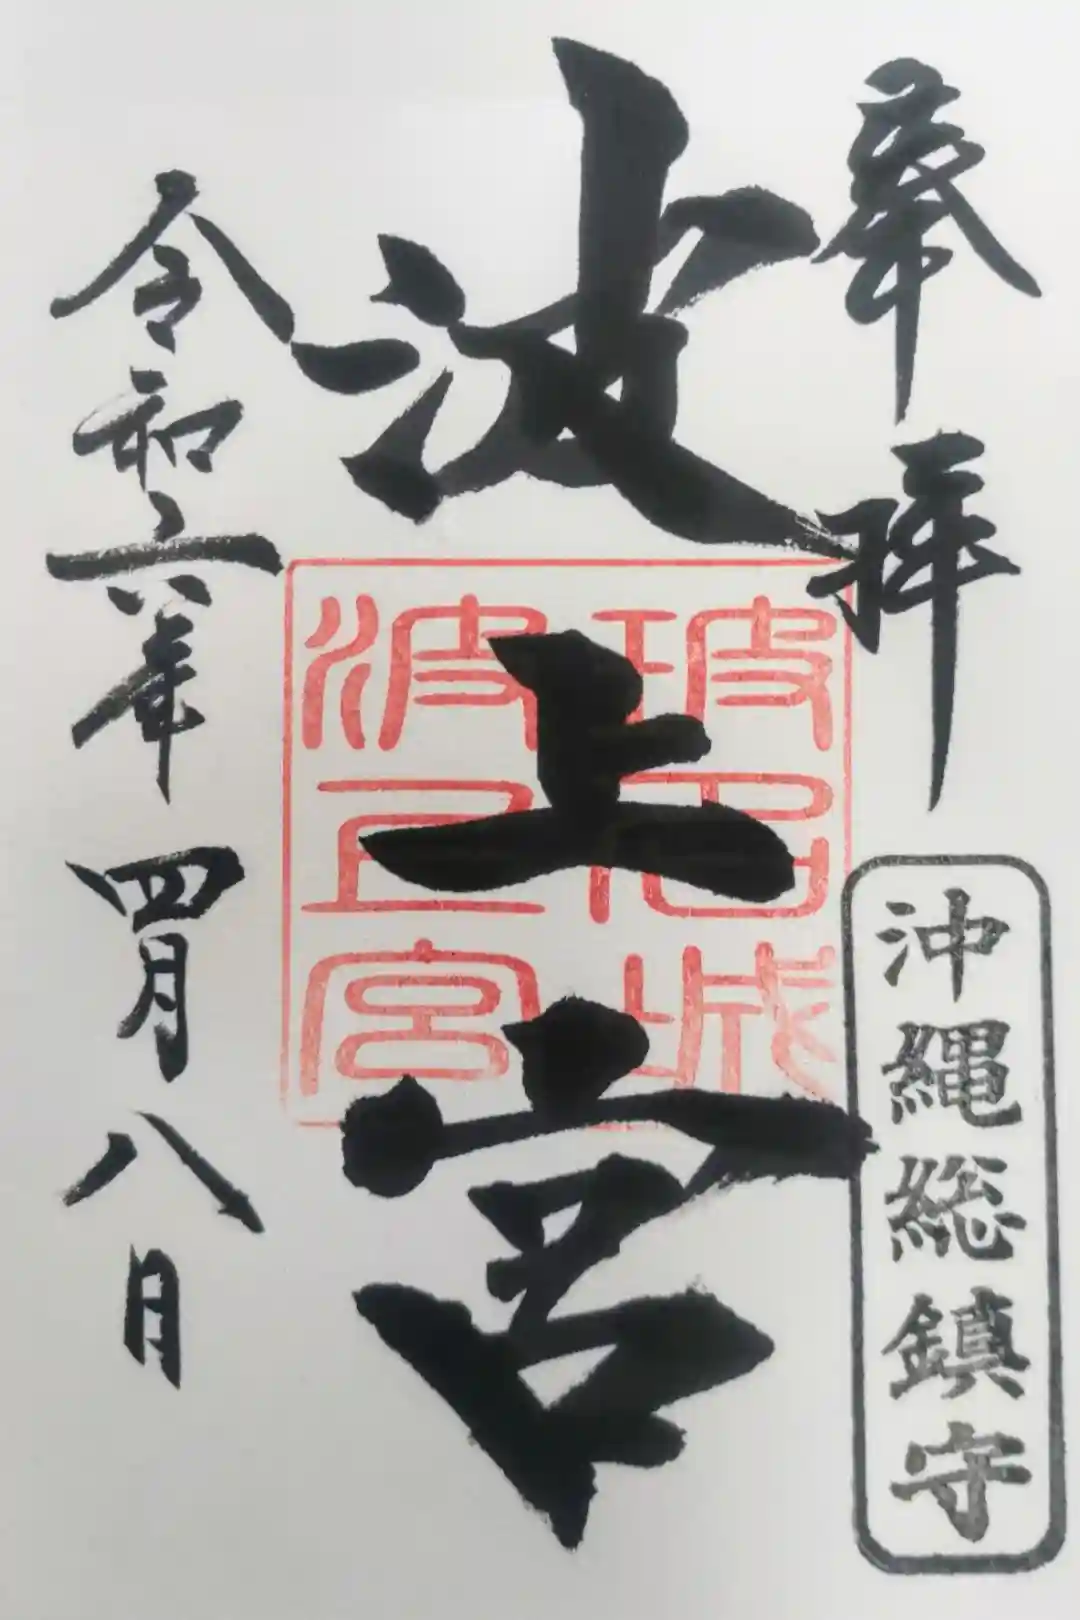 奉拝
沖縄総鎮守
波上宮
玻名城
波上宮
令和六年四月八日